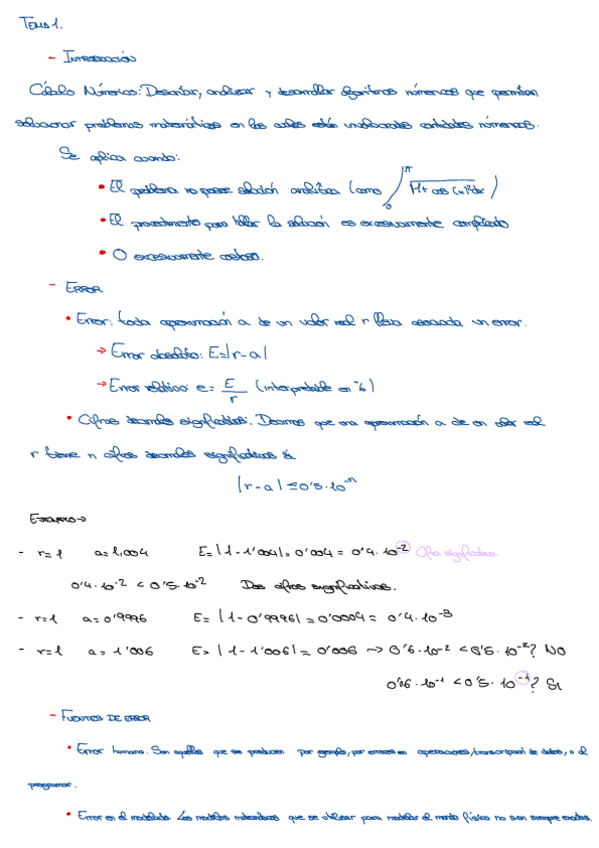 TEMA 1.
- INTRODUCCIÓN
Cálculo Numérico: Describir, analizar y desarrollar algoritmos numéricos que permitan
solucionar problemas matemáticos en los cuales están involucradas cantidades numéricas.
Se aplica cuando:
• El problema no posee solución analítica (como ∫
• El procedimiento para hallar la solución es excesivamente complicado
• O excesivamente costoso.
- ERROR
• Error: toda aproximación a de un valor real r lleva asociada un error.
→ Error absoluto: E=|r-a|
→ Error relativo: e= E/r (interpretable en %)
• Cifras decimales significativas: Decimos que una aproximación a de un valor real
r tiene n cifras decimales significativas si
|r-a| ≤ 0'5·10⁻ⁿ
EJEMPLO→
- r=1 a=1,004 E=|1-1'004|=0'004=0'4·10⁻² Cifra significativa
0'4·10⁻² < 0'5·10⁻² Dos cifras significativas.
- r=1 a=0'9996 E=|1-0'9996|=0'0004=0'4·10⁻³
- r=1 a=1'006 E=|1-1'006|=0'006 → 0'6·10⁻² < 0'5·10⁻²? NO
0'06·10⁻¹ < 0'5·10⁻¹? SI
- FUENTES DE ERROR
• Error humano. Son aquellos que se producen por ejemplo, por errores en operaciones, transcripción de datos, o al
programar.
• Error en el modelado. Los modelos matemáticos que se utilizan para modelar el mundo físico no son siempre exactos.